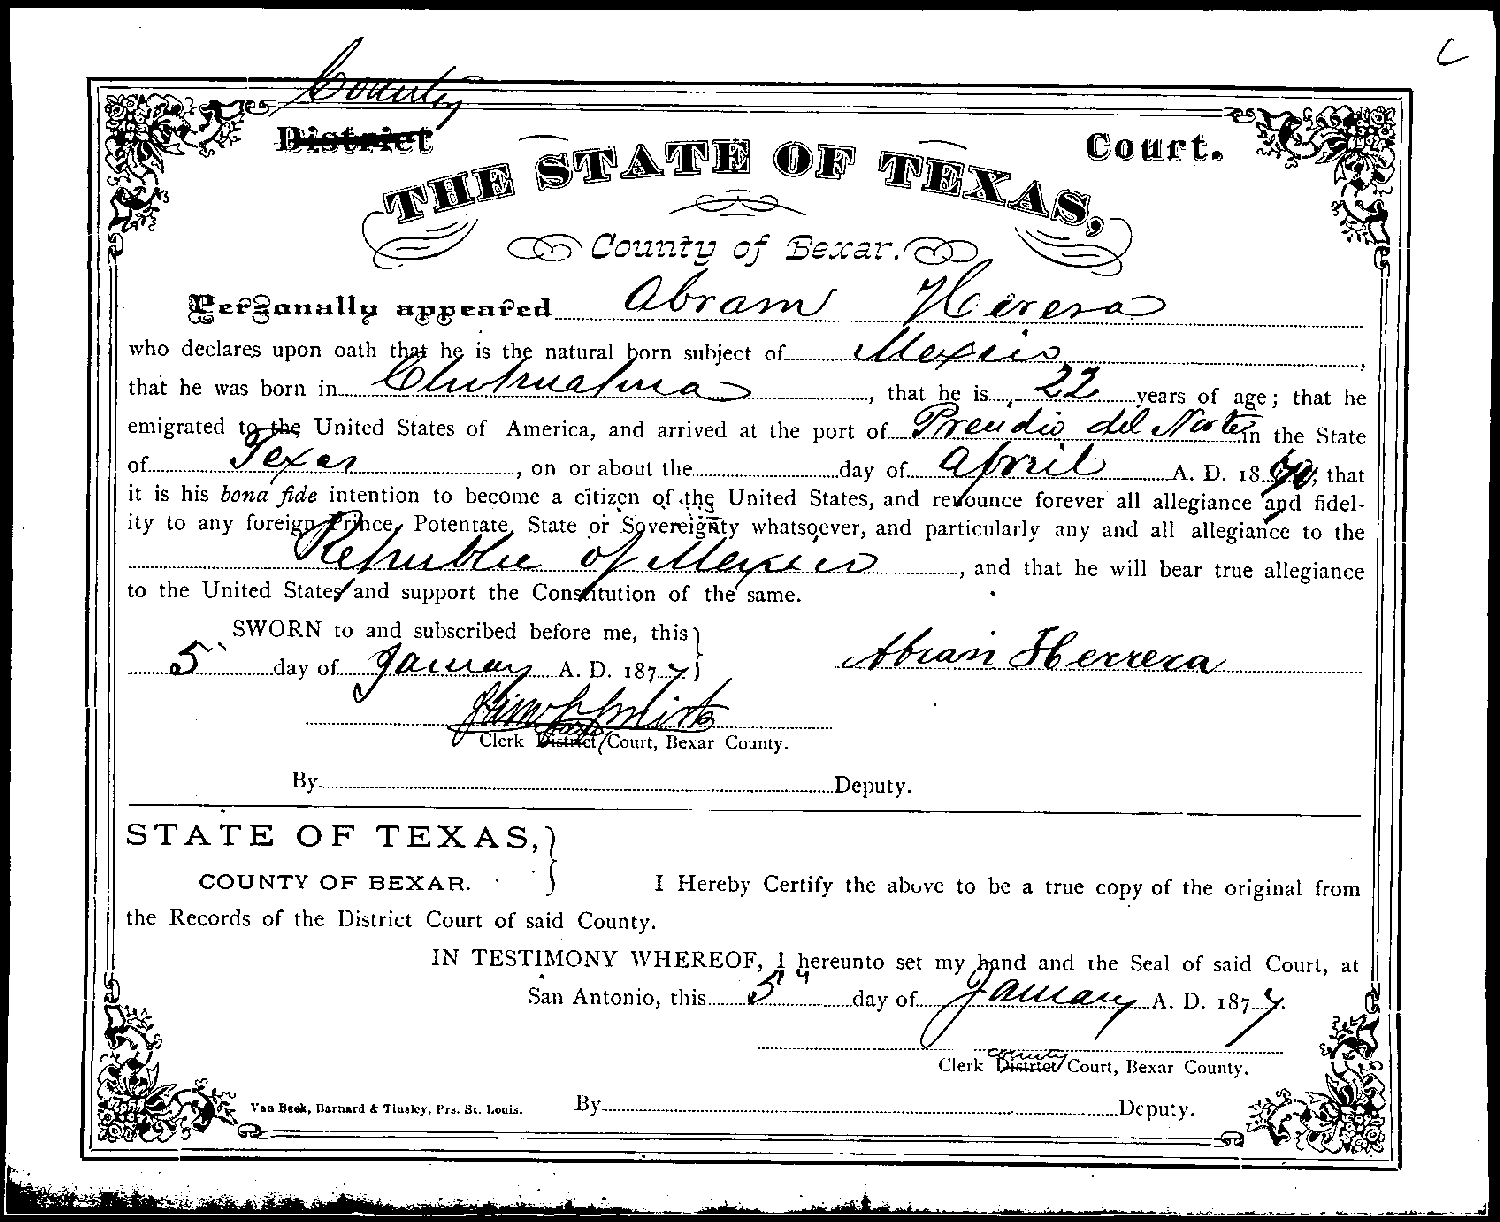 C
County
District Court.
THE STATE OF TEXAS,
County of Bexar.
Personally appeared Abram Herera
who declares upon oath that he is the natural born subject of Mexico
that he was born in Chihuahua, that he is 22 years of age; that he
emigrated to the United States of America, and arrived at the port of Precidio del Norte in the State
of Texas, on or about the day of April A. D. 18 that
it is his bona fide intention to become a citizen of the United States, and renounce forever all allegiance and fidel-
ity to any foreign Prince, Potentate, State or Sovereignty whatsoever, and particularly any and all allegiance to the
Republic of Mexico, and that he will bear true allegiance
to the United States and support the Constitution of the same.
SWORN to and subscribed before me, this
5 day of January A. D. 1877 Abran Herrera
Clerk District County Court, Bexar County.
By Deputy.
STATE OF TEXAS,
COUNTY OF BEXAR. I Hereby Certify the above to be a true copy of the original from
the Records of the District Court of said County.
IN TESTIMONY WHEREOF, I hereunto set my hand and the Seal of said Court, at
San Antonio, this 5" day of January A. D. 1877.
county
Clerk District Court, Bexar County.
Van Beek, Barnard & Tinsley, Prs. St. Louis. By Deputy.